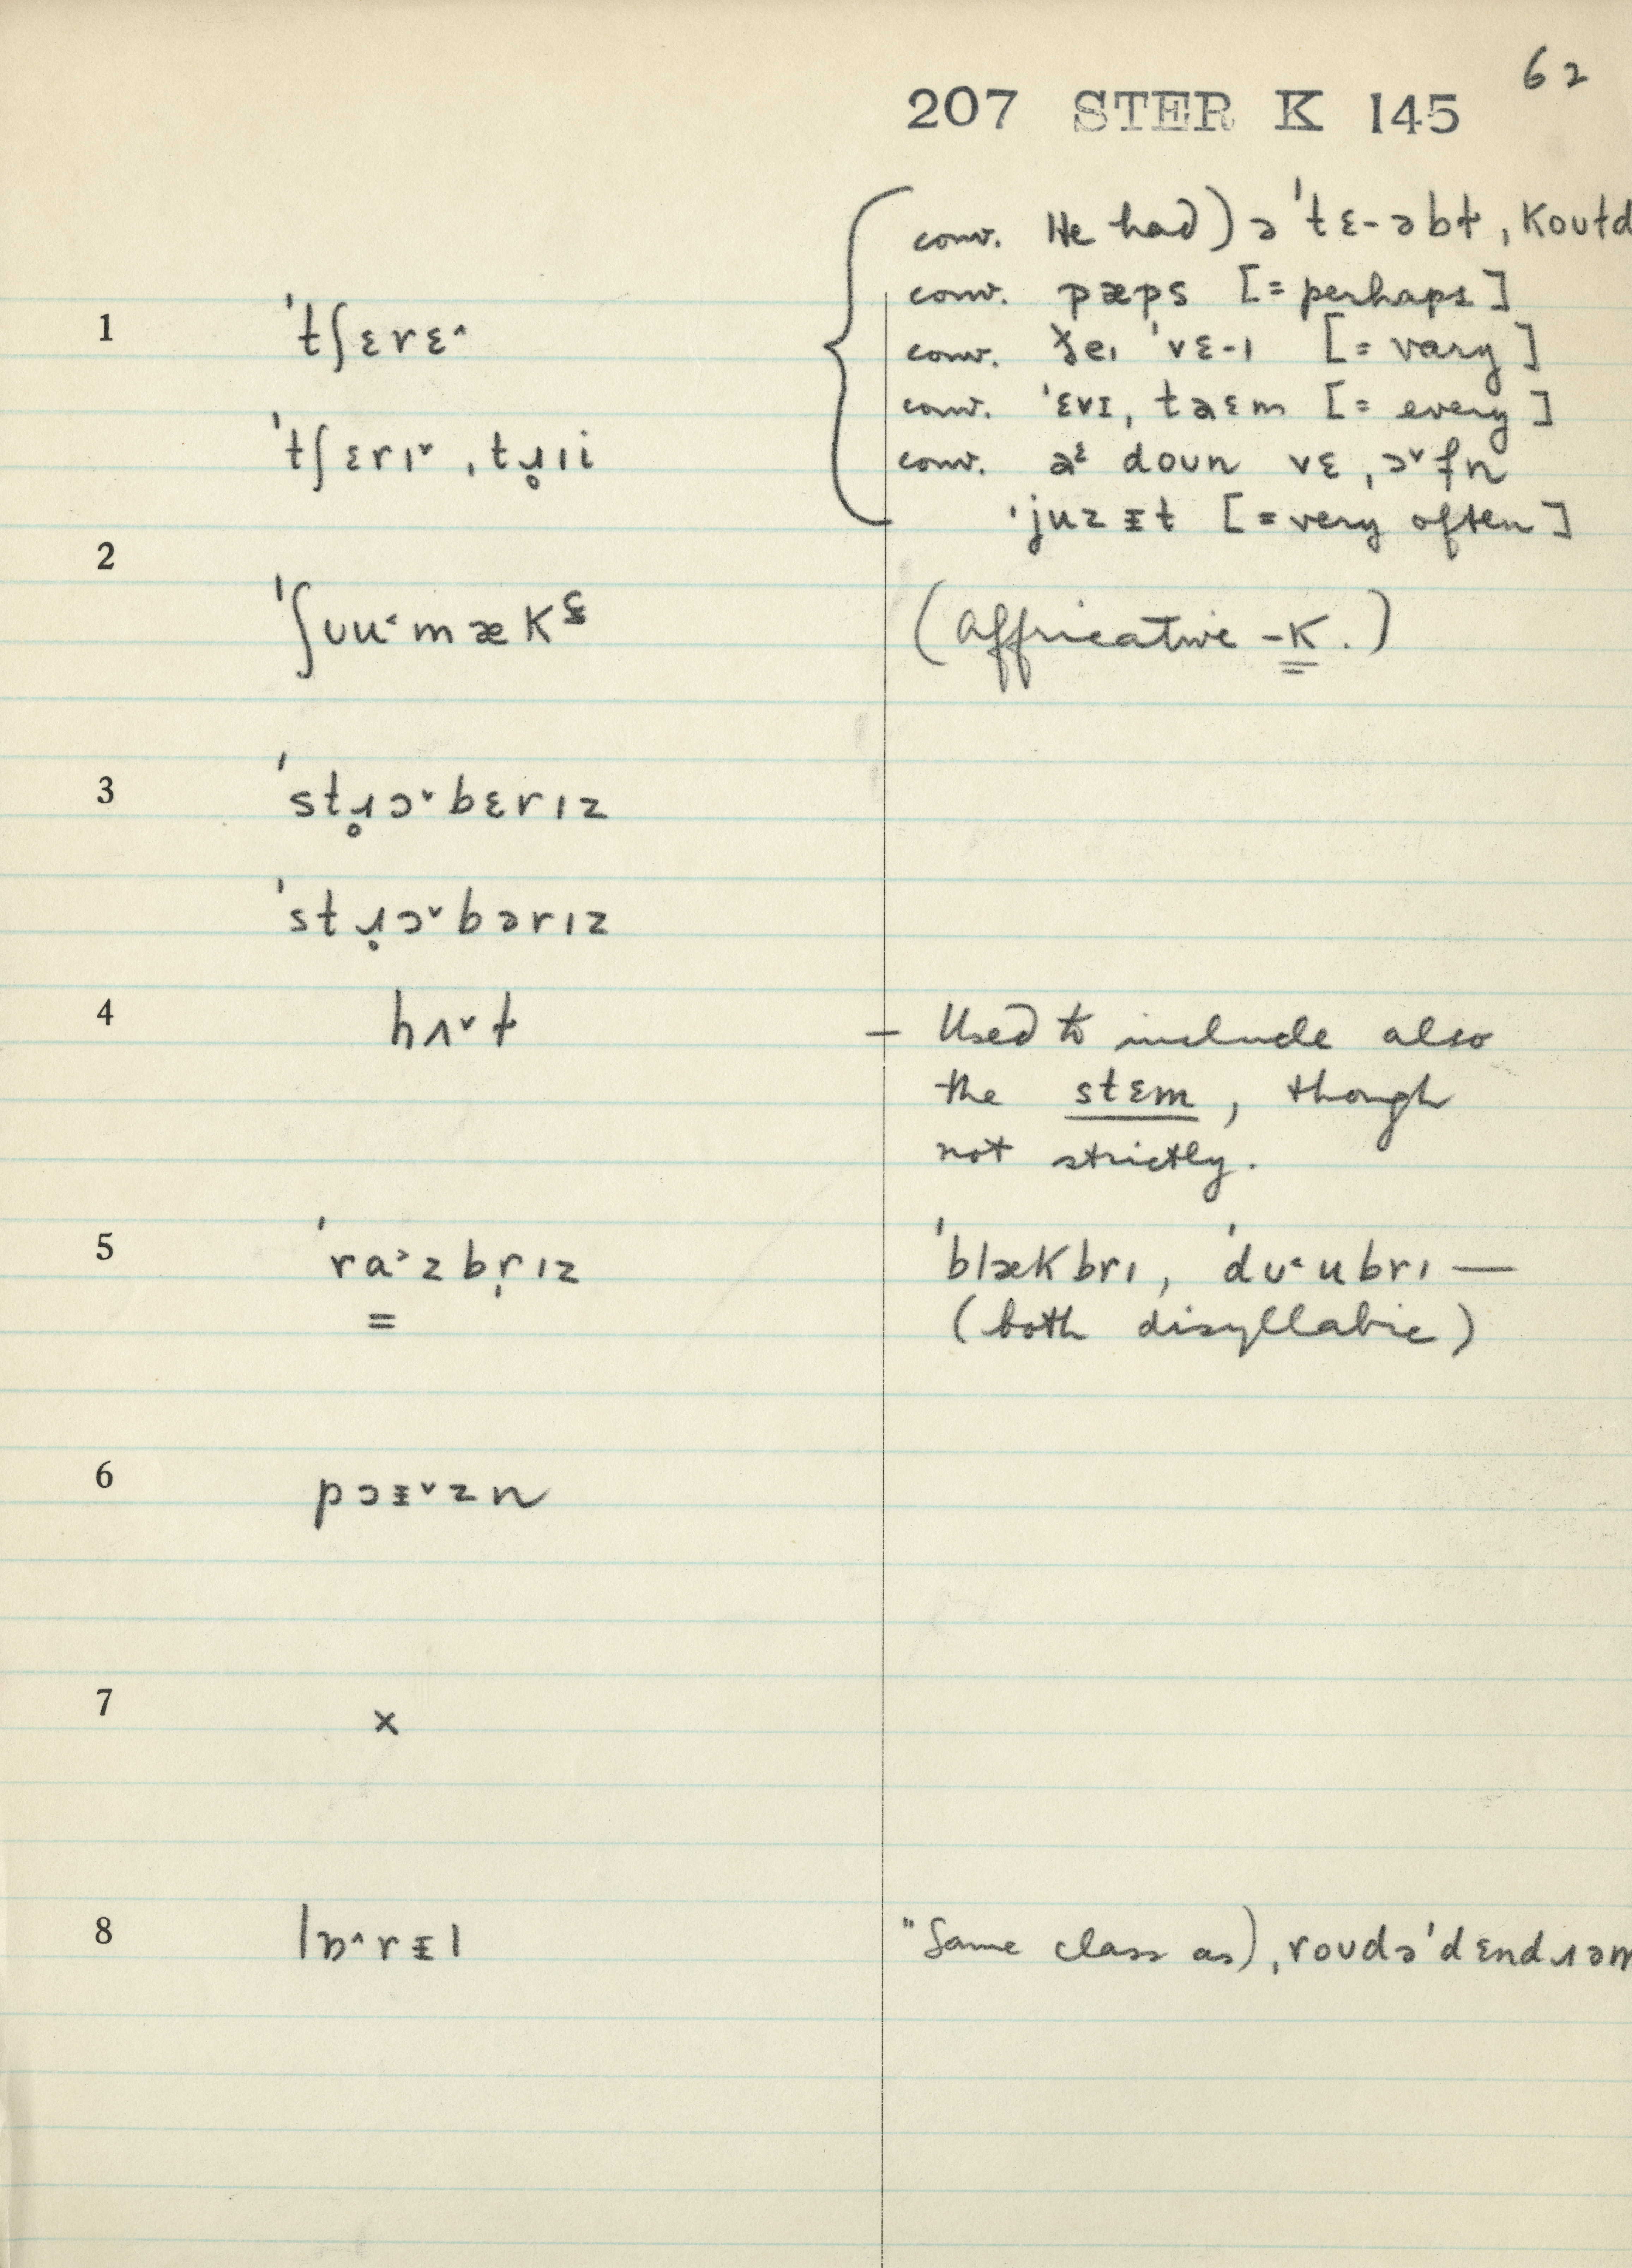 62
207 STER K 145
conv. He had) ə ˈtɛ-əbt, koutd
conv. pæps [= perhaps]
1 ˈtʃɛrɛ˄
conv. ðeɪ ˈvɛ-ɪ [= vary]
conv. ˈɛvɪ, taɛm [= every]
ˈtʃɛrɪ˅ ˌtɹ̥ɪi
conv. aᵋ doun vɛ ˌɔ˅fn
ˈjuzɪt [= very often]
2
ˈʃʊu˂mækˢ
(affricative -k.)
3 ˈstɹ̥ɔ˅bɛrɪz
ˈstɹ̣ɔ˅bərɪz
4 hʌ˅t
– Used to include also
the stɛm, though
not strictly.
5 ˈra˃zbr̩ɪz
=
ˈblækbrɪ, ˈdʊ˂ubrɪ —
(both disyllabic)
6 pɔɪ˅zn
7 ×
8 lɒ˄rɪl
"Same class as) ˌroudəˈdɛndɹəm